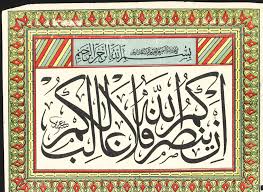 بسم الله الرحمن الرحيم
إن ينصركم الله فلا غالب لكم